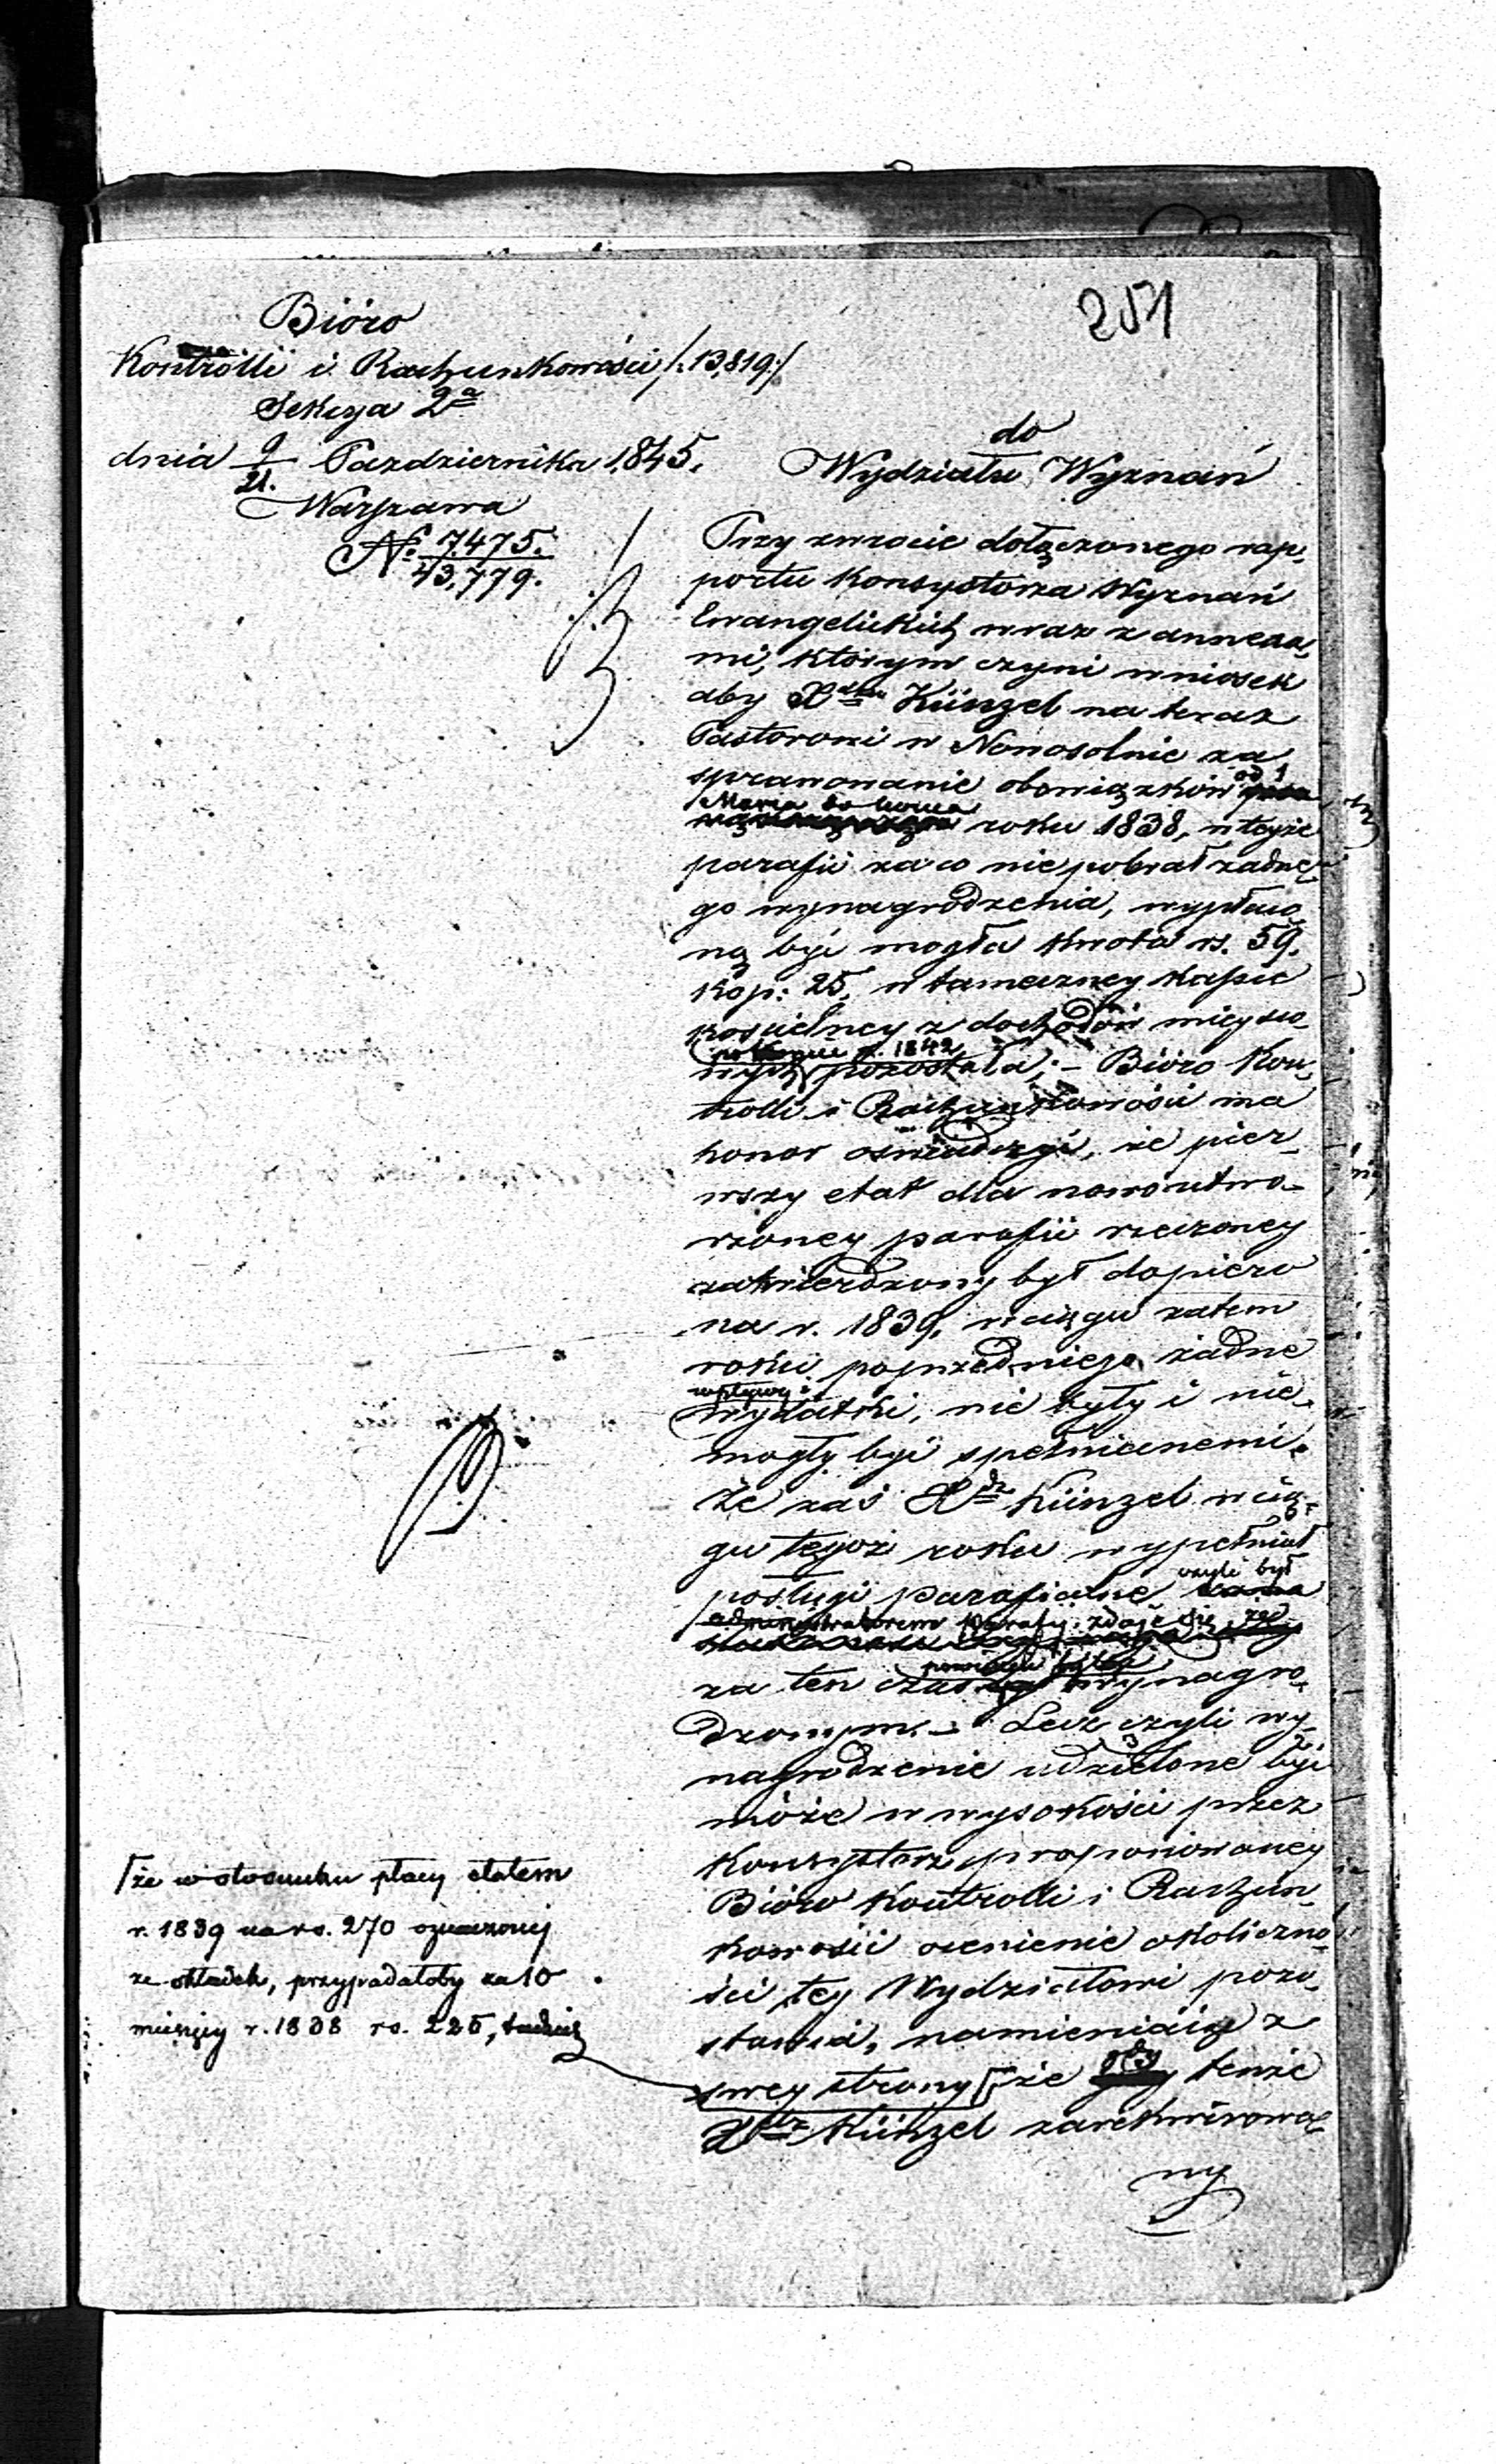 251
Bióro
Kontrolli i Rachunkowości /:13,819:/
Sekcya 2ª
dnia 9/21. Października 1845.
Warszawa
N° 7475.
43,779.
do
Wydziału Wyznań
Przy zwrocie dołączonego rap-
portu Konsystorza Wyznań
Ewangelickich wraz z annexa-
mi, którym czyni wniosek
aby Xdzu Künzel na teraz
Pastorowi w Nowosolnie za
sprawowanie obowiązków od 1
Marca do końca roku 1838, w tejże
parafii za co nie pobrał żadne-
go wynagrodzenia, wypłaco-
ną być mogła kwota rs. 59.
kop: 25, w tameczney kassie
kościelney z dochodów mieysco-
wych po końcu r. 1842 pozostała; – Bióro Kon-
trolli i Rachunkowości ma
honor oświadczyć, że pier-
wszy etat dla nowo utwo-
rzoney parafii rzeczoney
zatwierdzony był dopiero
na r. 1839, w ciągu zatem
roku poprzedniego żadne
wpływy i
wydatki, nie były i nie
mogły być spełnianemi.
Że zaś Xdz Künzel w cią-
gu tegoż roku wypełniał
posługi parafialne czyli był
administratorem Parafii, zdaje się, że
za ten czas powinien być wynagro-
dzonym. – Lecz czyli wy-
nagrodzenie udzielone być
może w wysokości przez
Konsystorz proponowaney
Bióro Kontrolli i Rachun-
kowości ocenienie okoliczno-
ści tey Wydziałowi pozo-
stawia, namieniając z
swey strony że gdy tenże
Xdz Künzel zarekwirowa-
ny
że w stosunku płacy etatem
r. 1839 na rs. 270 oznaczonej
ze składek, przypadałoby za 10
miesięcy r. 1838 rs. 225, tudzież